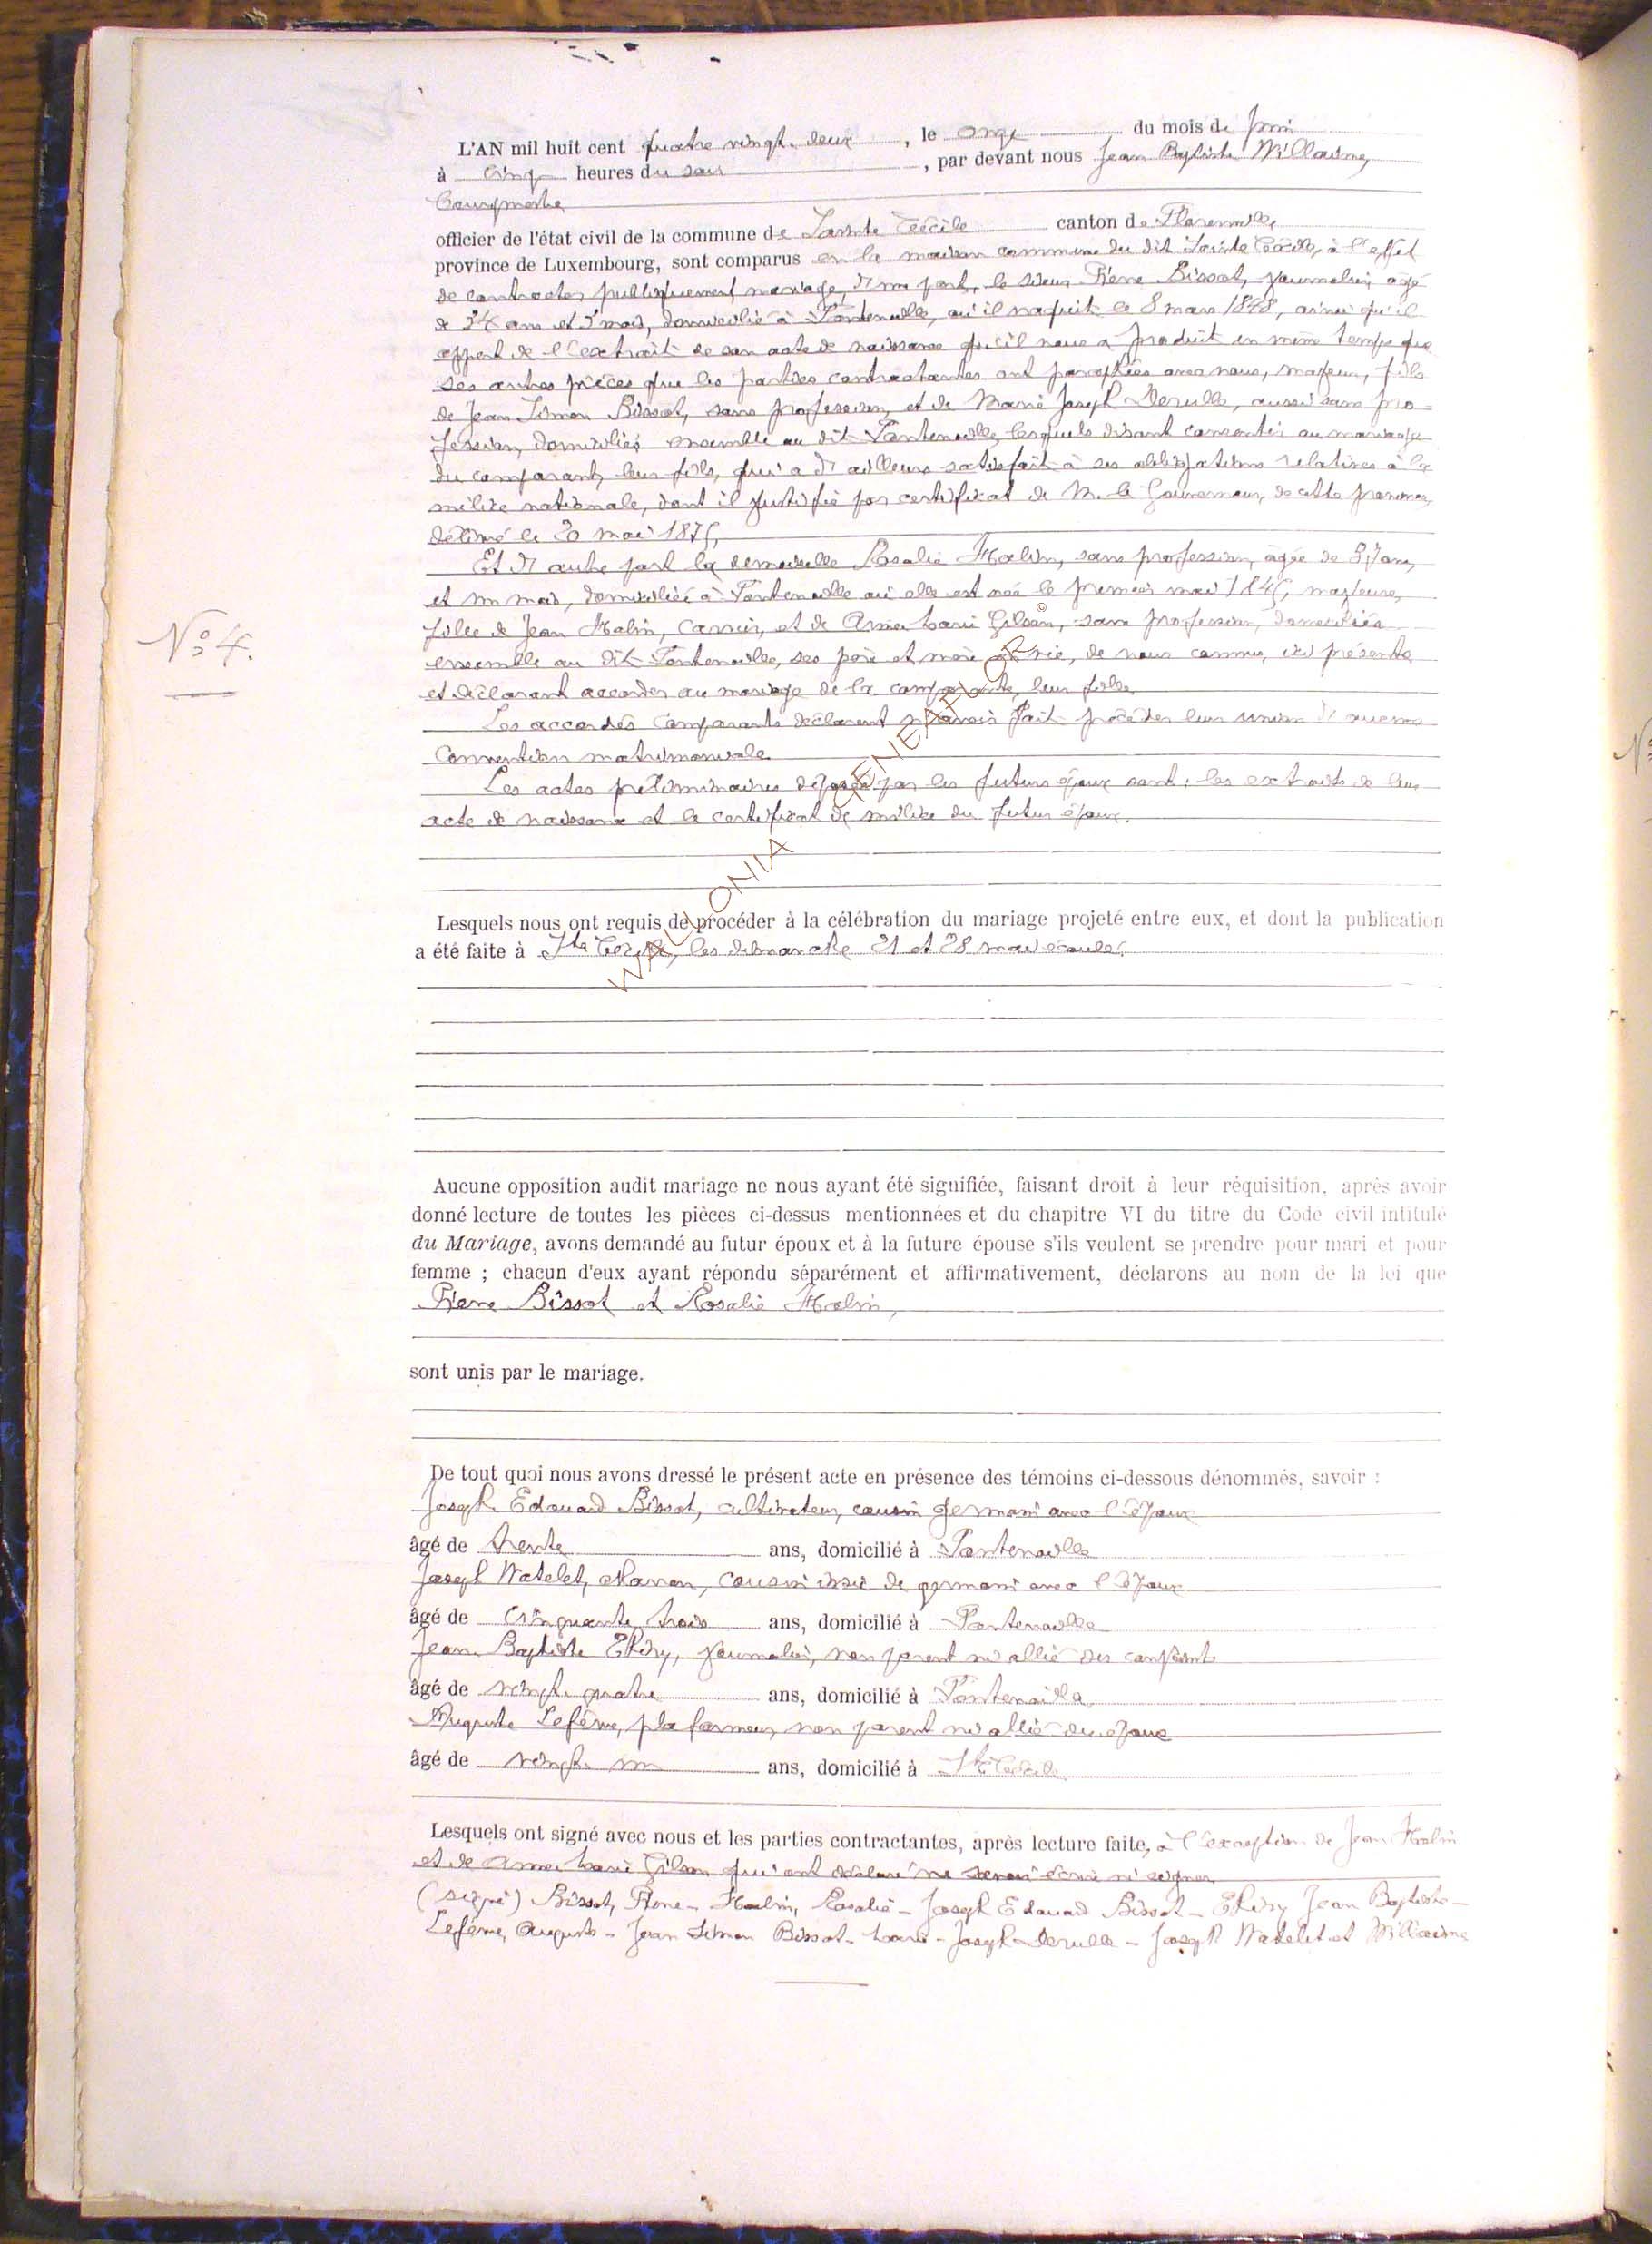 L'AN mil huit cent quatre vingt. deux, le onze du mois de juin
à cinq heures du soir, par devant nous Jean Baptiste Willaime,
Bourgmestre
officier de l'état civil de la commune de Sainte Cécile canton de Florenville,
province de Luxembourg, sont comparus en la maison commune du dit Sainte Cécile, à l'effet
de contracter publiquement mariage, d'une part, le sieur Pierre Bissot, journalier, âgé
de 34 ans et 3 mois, domicilié à Fontenoille, où il naquit le 8 mars 1848, ainsi qu'il
appert de l'extrait de son acte de naissance qu'il nous a produit en même temps que
les autres pièces que les parties contractantes ont avec nous, majeur, fils
de Jean Simon Bissot, sans profession, et de Marie Joseph Derulle, aussi sans pro-
fession, domiciliés ensemble au dit Fontenoille, lesquels disant consentir au mariage
du comparant, leur fils, qui a d'ailleurs satisfait à ses obligations relatives à la
milice nationale, dont il justifie par certificat de M. le Gouverneur, de cette province,
délivré le 20 mai 1875,
Et d'autre part la demoiselle Rosalie Halin, sans profession, âgée de 37 ans,
et un mois, domiciliée à Fontenoille où elle est née le premier mai 1845, majeure,
fille de Jean Halin, carrier, et de Anne Marie Gilson, sans profession, domiciliés
ensemble au dit Fontenoille, ses père et mère, de nous connus, ici présents
et déclarant accorder au mariage de la comparante, leur fille.
Les accordés comparants déclarent n'avoir fait précéder leur union d'aucune
convention matrimoniale.
Les actes préliminaires déposés par les futurs époux sont: les extraits de leur
acte de naissance et le certificat de milice du futur époux.
N° 4.
Lesquels nous ont requis de procéder à la célébration du mariage projeté entre eux, et dont la publication
a été faite à Ste Cécile, les dimanche 21 et 28 mai écoulé.
WALLONIA GENEALOG ©
Aucune opposition audit mariage ne nous ayant été signifiée, faisant droit à leur réquisition, après avoir
donné lecture de toutes les pièces ci-dessus mentionnées et du chapitre VI du titre du Code civil intitulé
du Mariage, avons demandé au futur époux et à la future épouse s'ils veulent se prendre pour mari et pour
femme ; chacun d'eux ayant répondu séparément et affirmativement, déclarons au nom de la loi que
Pierre Bissot et Rosalie Halin,
sont unis par le mariage.
De tout quoi nous avons dressé le présent acte en présence des témoins ci-dessous dénommés, savoir :
Joseph Edouard Bissot, cultivateur, cousin germain avec l'époux
âgé de trente ans, domicilié à Fontenoille
Joseph Watelet, charron, cousin issu de germain avec l'époux
âgé de cinquante trois ans, domicilié à Fontenoille
Jean Baptiste Ethiry, journalier, non parent ni allié des conjoints
âgé de vingt quatre ans, domicilié à Fontenoille
Auguste Lefèvre, plafonneur, non parent ni allié des époux
âgé de vingt un ans, domicilié à Ste Cécile
Lesquels ont signé avec nous et les parties contractantes, après lecture faite, à l'exception de Jean Halin
et de Anne Marie Gilson qui ont déclaré ne savoir écrire ni signer
(signé) Bissot, Pierre - Halin, Rosalie - Joseph Edouard Bissot - Ethiry Jean Baptiste -
Lefèvre, Auguste - Jean Simon Bissot - Marie - Joseph Derulle - Joseph Watelet et Willaime